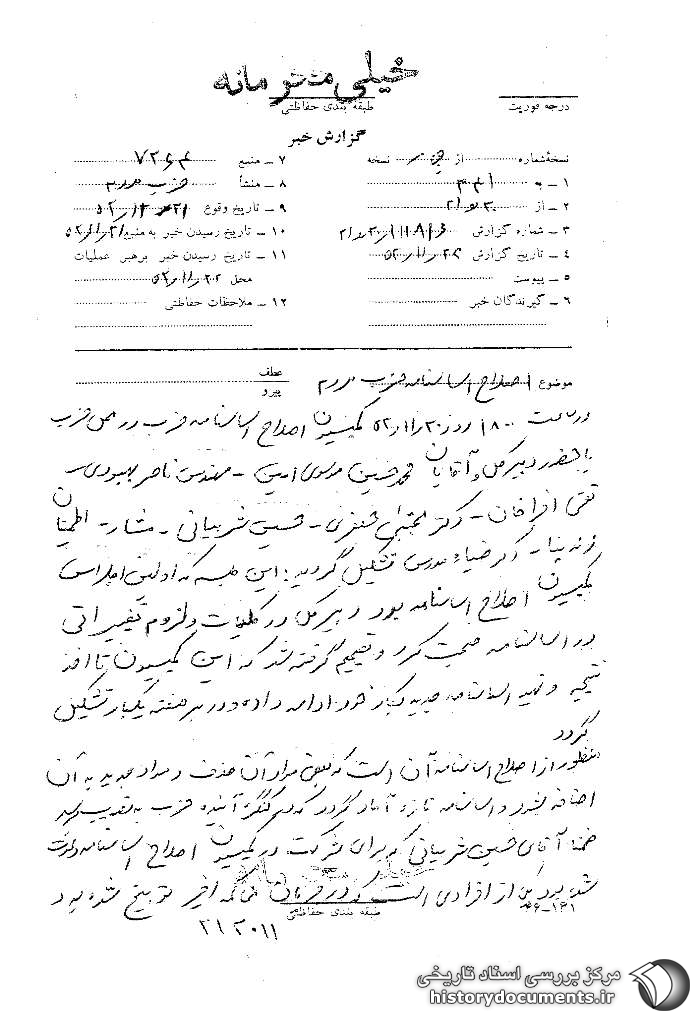 خیلی محرمانه
درجه فوریت
طبقه بندی حفاظتی
گزارش خبر
نسخه شماره از نسخه
۱ - به ۳۴۱
۲ - از ۲۱ ه ۳۰
۳ - شماره گزارش
۴ - تاریخ گزارش ۵۲/۱۱/۲۲
۵ - پیوست
۶ - گیرندگان خبر
۷ - منبع ۷۲۶۴
۸ - منشأ حزب مردم
۹ - تاریخ وقوع
۱۰ - تاریخ رسیدن خبر به منبع ۵۲/۱۱/۲۱
۱۱ - تاریخ رسیدن خبر برهبر عملیات
محل ۵۲/۱۱/۲۲
۱۲ - ملاحظات حفاظتی
موضوع اصلاح اساسنامه حزب مردم
عطف
پیرو
در ساعت ۱۸۰۰ روز ۵۲/۱۱/۲۰ کمیسیون اصلاح اساسنامه حزب در محل حزب
با حضور دبیرکل و آقایان محمدحسین موسوی - مهندس ناصر بهبودی
تقی - دکتر مجتبی جعفری - حسین شربیانی - مشار - اطمینان
- دکتر ضیاء مدرس تشکیل گردید، این جلسه که اولین اجلاس
کمیسیون اصلاح اساسنامه بود دبیرکل در کلیات و لزوم تغییراتی
در اساسنامه صحبت کرد و تصمیم گرفته شد که این کمیسیون تا اخذ
نتیجه و تهیه اساسنامه جدید بکار خود ادامه داده و در هر هفته یکبار تشکیل
گردد
منظور از اصلاح اساسنامه آن است که بعضی مواد آن حذف و مواد جدید به آن
اضافه بشود و اساسنامه تازه آماده گردد که در کنگره آینده حزب به تصویب برسد
ضمنا آقای حسین شربیانی که برای شرکت در کمیسیون اصلاح اساسنامه دعوت
شده بود یکی از افرادی است که در جریان محاکمه اخیر توبیخ شده بود
خیلی محرمانه
طبقه بندی حفاظتی
۴۶-۱۳۱
۲۱۲۰۱۱
مرکز بررسی اسناد تاریخی
historydocuments.ir